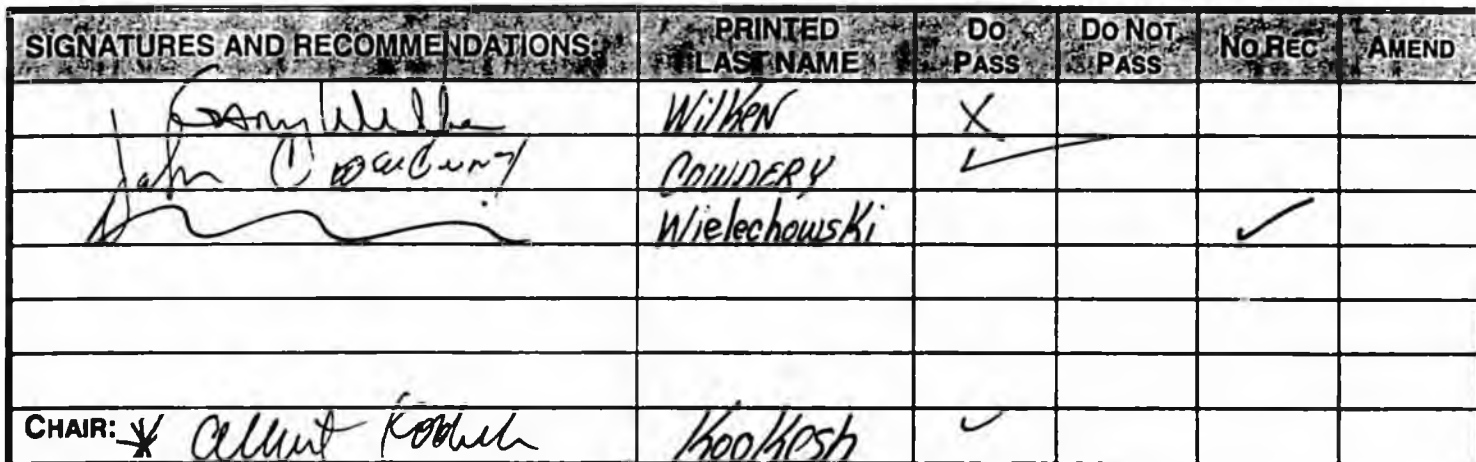 SIGNATURES AND RECOMMENDATIONS: PRINTED LAST NAME DO PASS DO NOT PASS NO REC AMEND
Gary Wilken Wilken X
John Cowdery COWDERY ✓
Wielechowski ✓
CHAIR: Albert Kookesh Kookesh ✓